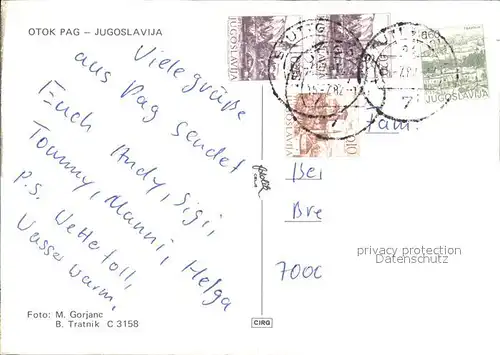 OTOK PAG – JUGOSLAVIJA
Viele grüße
aus Pag sendet
Euch Andy, Sigi,
Tommy, Manni, Helga
P.S. Wetter toll,
Wasser warm.
Foto: M. Gorjanc
B. Tratnik C 3158
CIRG
JUGOSLAVIJA
JUGOSLAVIJA
8.60
JUGOSLAVIJA
7
7
Fam.
Bei
Bre
privacy protection
Datenschutz